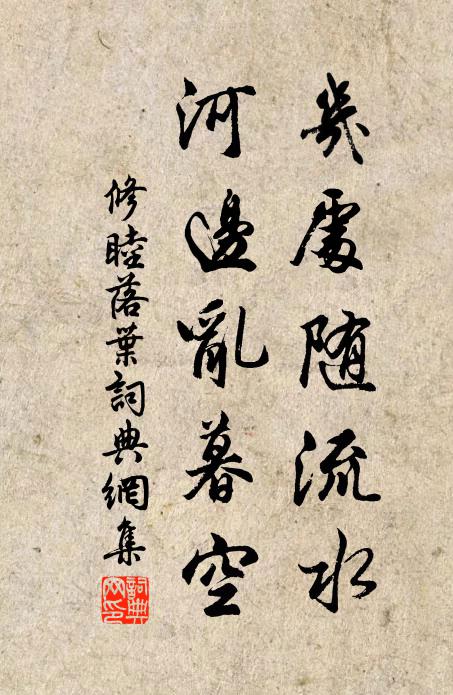 幾處隨流水
河邊亂暮空
修睦落葉詞典網集
詞典網印